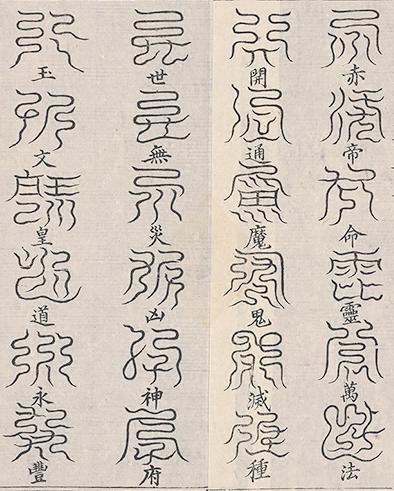 赤帝命靈萬法
開通魔鬼滅種
世無災凶神府
玉文皇道永豐